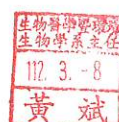 生物醫學學碩
生物學系主任
112. 3. -8
黃 斌